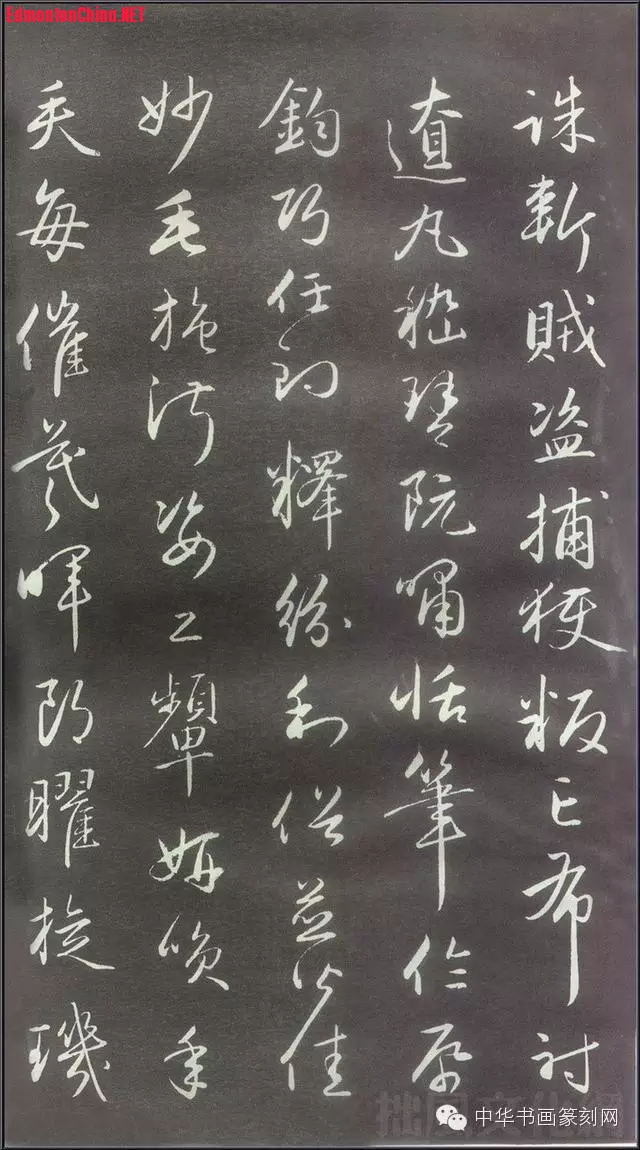 EdmontonChina.NET
誅斬賊盜捕獲叛亡布射
遼丸嵇琴阮嘯恬筆倫紙
鈞巧任釣釋紛利俗並皆佳
妙毛施淑姿工顰妍笑年
矢每催羲暉朗曜旋璣
拙風文化網
中华书画篆刻网